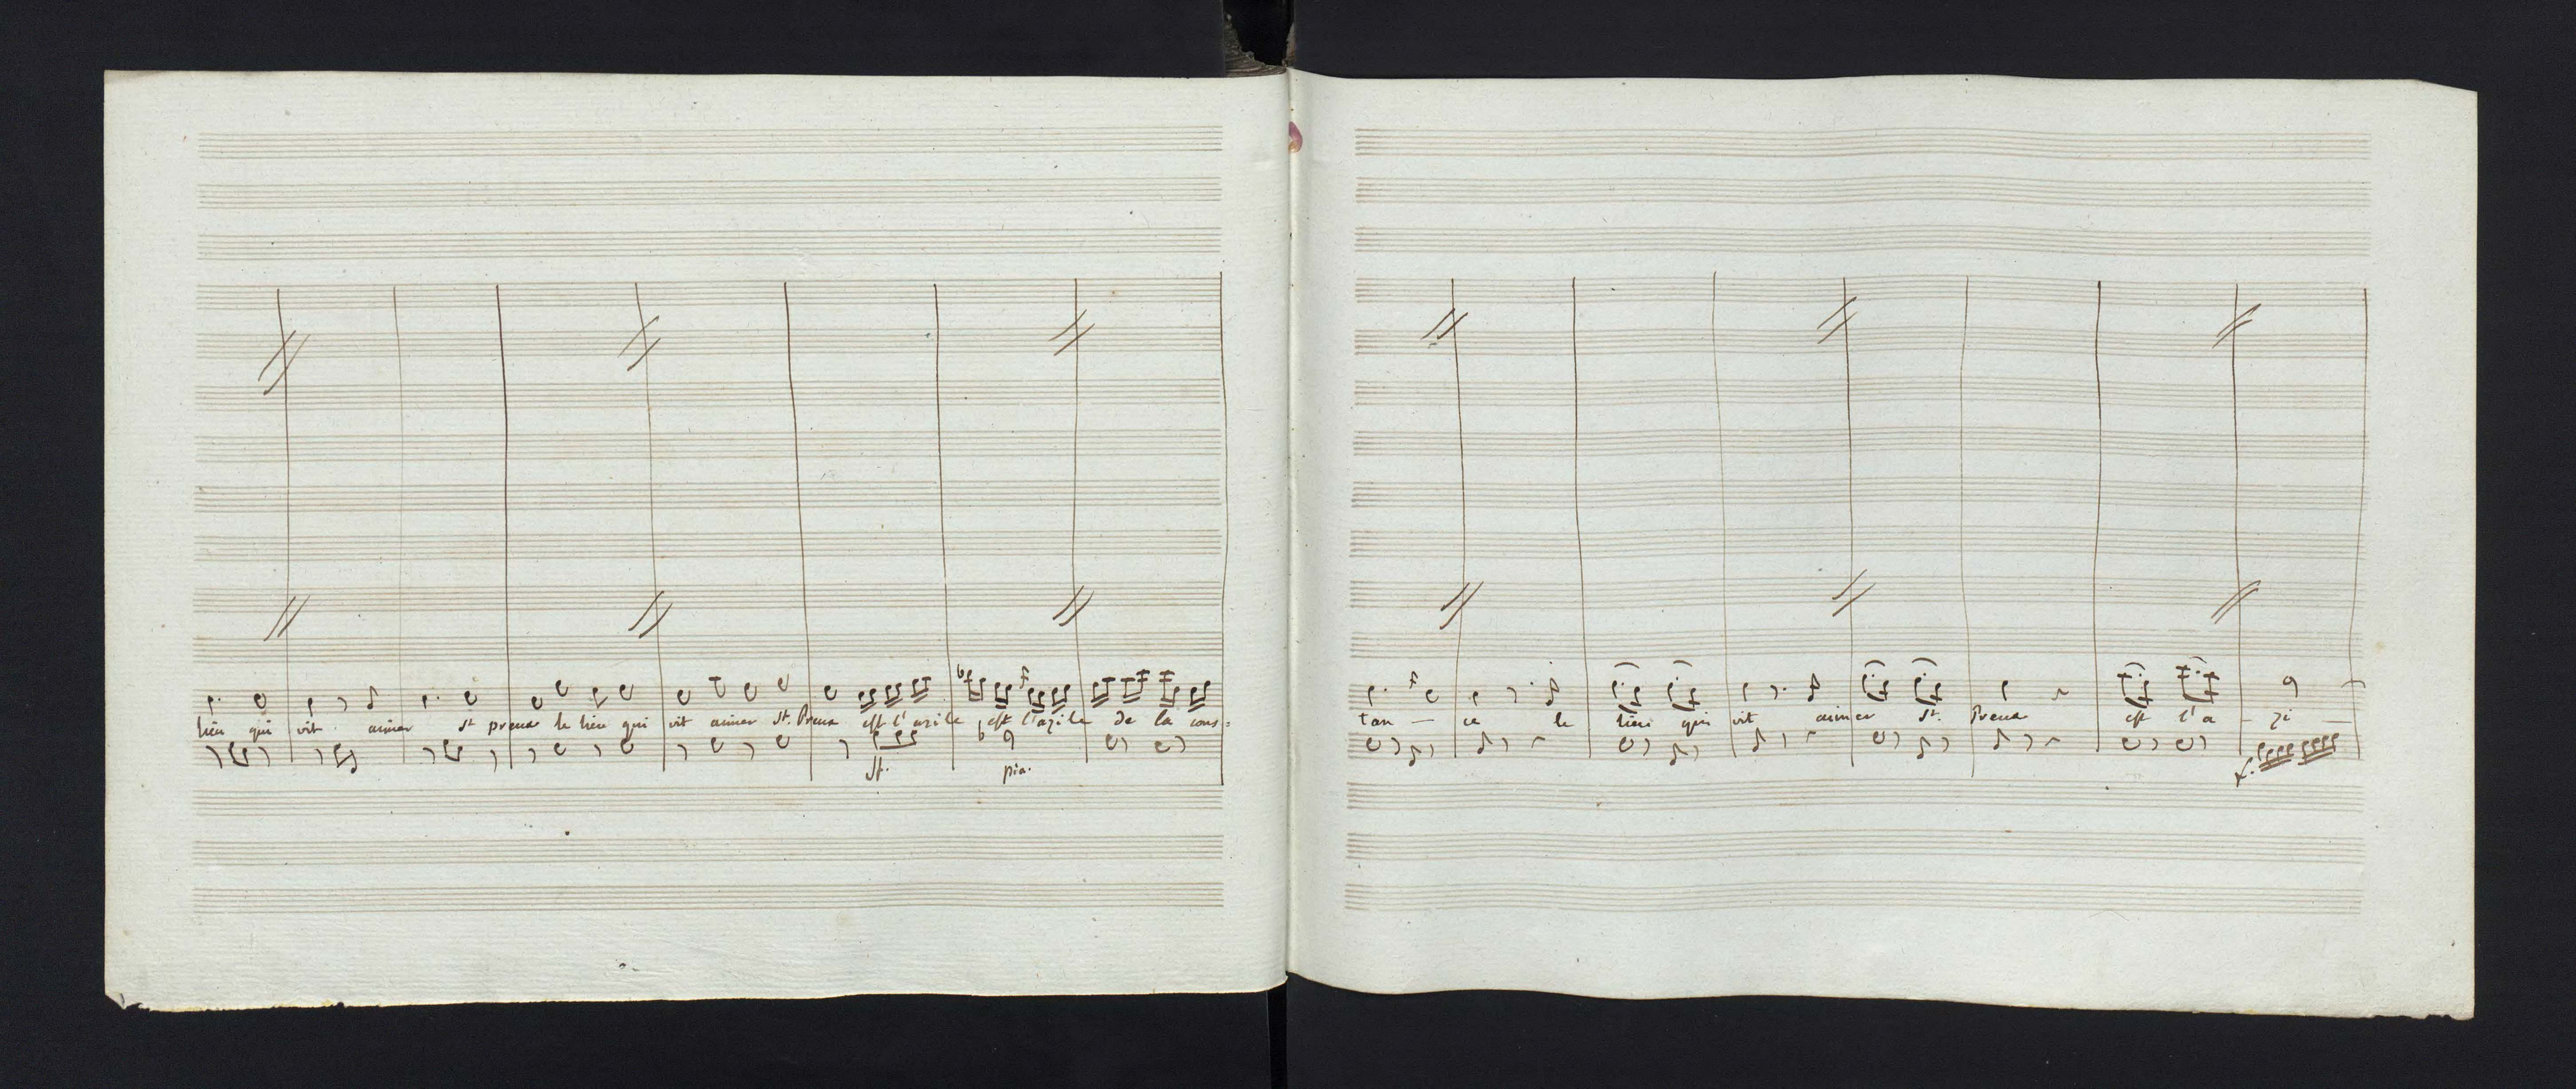 lieu qui vit aimer st preux le lieu qui vit aimer st. Preux est l'azile, est l'azile de la cons=
st. pia.
tan — ce le lieu qui vit aimer st. Preux est l'a - zi —
f.